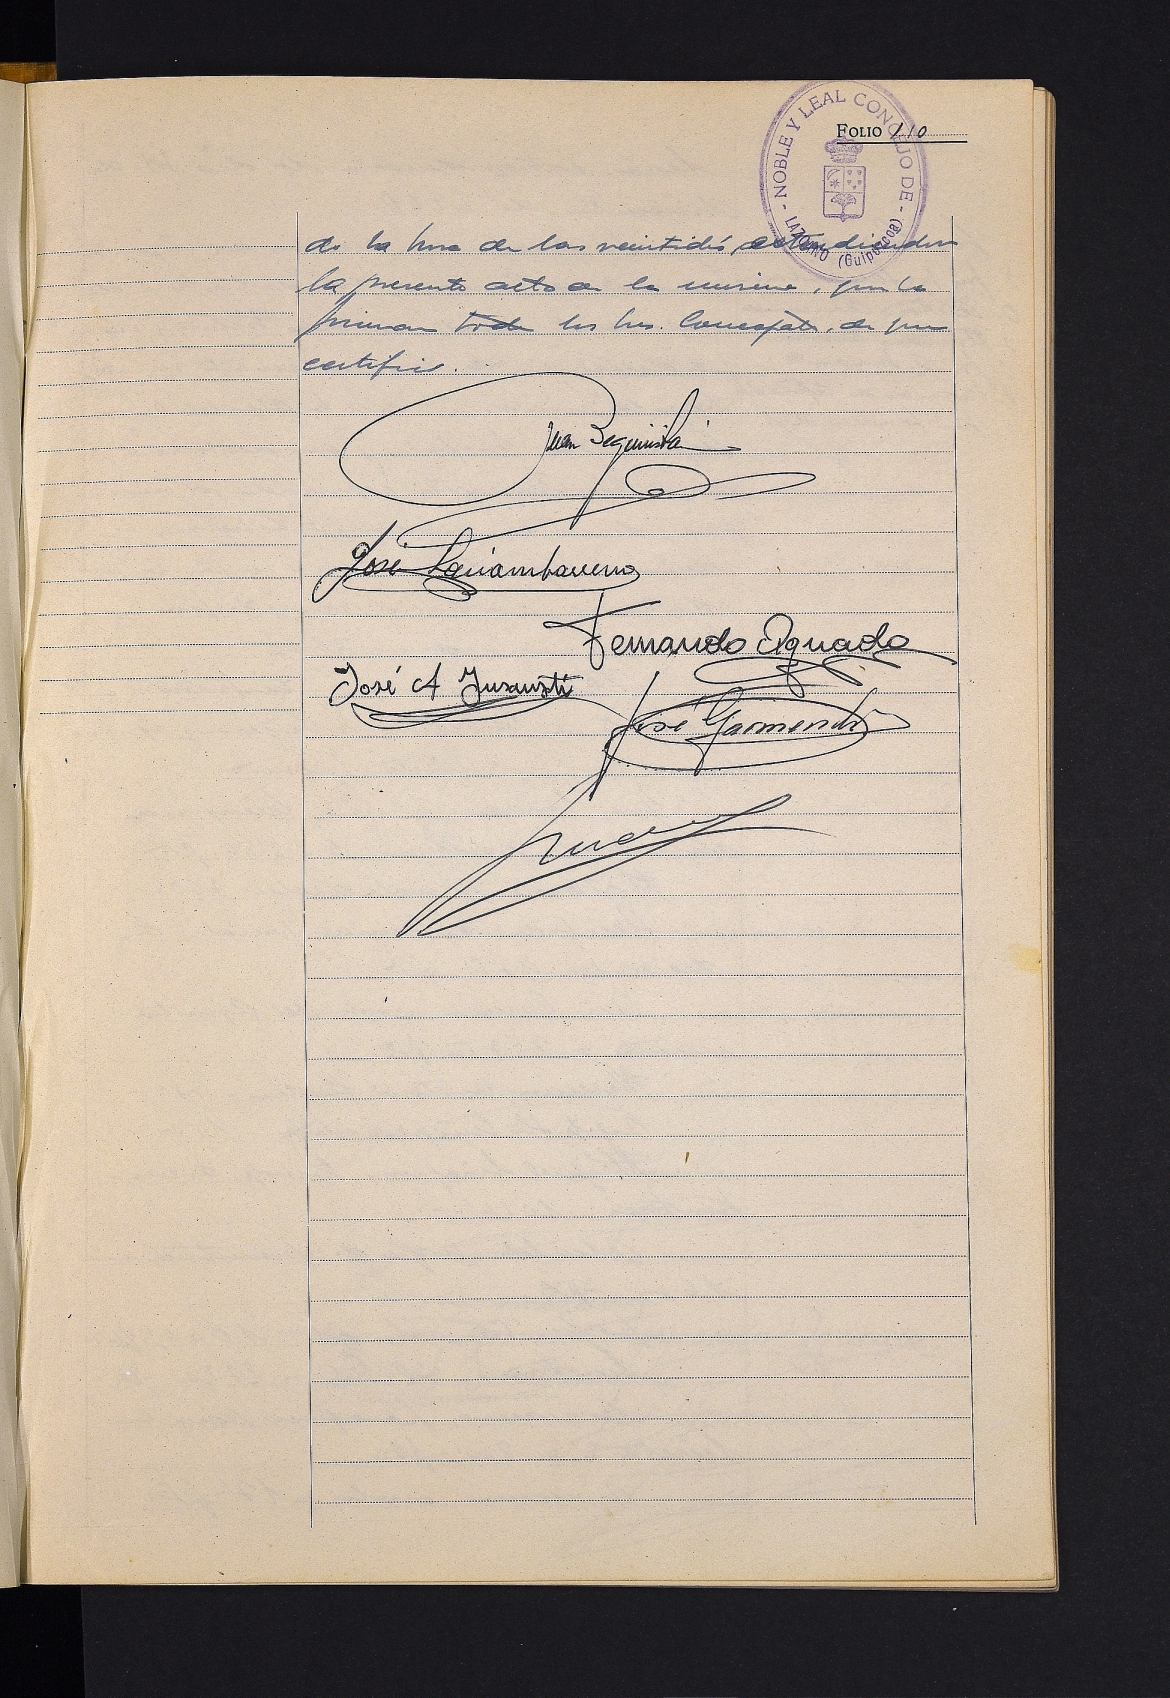 FOLIO 110
- NOBLE Y LEAL CONCEJO DE -
LAZCANO (Guipúzcoa)
do la hora de las veintidós, extendiendose
la presente acta en la misma, que la
firman todos los Srs. Concejales, de que
certifico.
Juan Beguiristain
José
Fernando Aguado
José A Insausti
José Garmendia